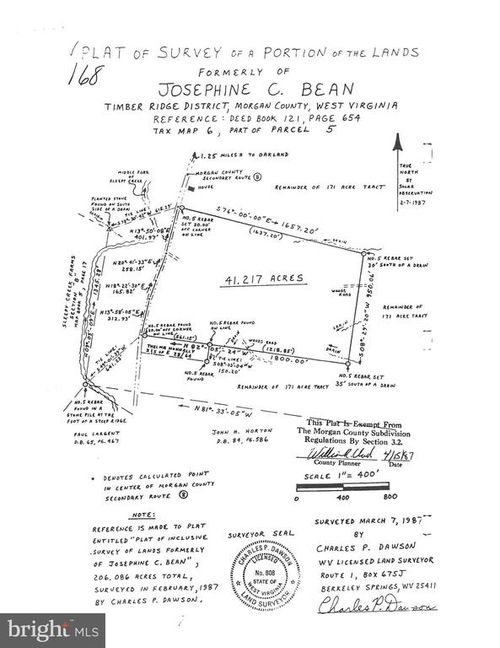 168
PLAT OF SURVEY OF A PORTION OF THE LANDS
FORMERLY OF
JOSEPHINE C. BEAN
TIMBER RIDGE DISTRICT, MORGAN COUNTY, WEST VIRGINIA
REFERENCE: DEED BOOK 121, PAGE 654
TAX MAP 6, PART OF PARCEL 5
1.25 MILES ± TO OAKLAND
MIDDLE FORK
OF
SLEEPY CREEK
MORGAN COUNTY
SECONDARY ROUTE 8
HOUSE
REMAINDER OF 171 ACRE TRACT
TRUE
NORTH
BY
SOLAR
OBSERVATION
2-7-1987
PLANTED STONE
FOUND ON SOUTH
SIDE OF A DRAIN
TIE LINE
NO. 5 REBAR
SET 20.00'
OFF CORNER
ON LINE
S76°-00'-00"E → 1657.20'
(1637.20')
DRAIN
NO. 5 REBAR SET
30' SOUTH OF A DRAIN
N13°-50'-08"E
401.97'
N20°-41'-33"E
258.15'
N18°-22'-30"E
165.82'
N13°-58'-05"E
312.93'
41.217 ACRES
WOODS
ROAD
S08°-29'-20"W 950.06'
REMAINDER OF
171 ACRE TRACT
SLEEPY CREEK FARMS
SECTION B
MAP BOOK 5, PAGE 17
1345.28'
TIE LINE
NO. 5 REBAR FOUND
20.00' OFF CORNER
ON LINE
NO. 5 REBAR
FOUND
ON LINE
(561.15')
WOODS ROAD
(1218.85')
N 82°-05'-24"W
1800.00'
TIE LINE
150.20'
NO. 5 REBAR
FOUND
NO. 5 REBAR SET
35' SOUTH OF A DRAIN
REMAINDER OF 171 ACRE TRACT
NO. 5 REBAR
FOUND IN A
STONE PILE AT THE
FOOT OF A STEEP RIDGE
N81°-33'-05"W
PAUL LARGENT
D.B. 65, PG. 467
JOHN H. HORTON
D.B. 84, PG. 586
This Plat Is Exempt From
The Morgan County Subdivision
Regulations By Section 3.2.
4/15/87
County Planner Date
SCALE 1" = 400'
0 400 800
* DENOTES CALCULATED POINT
IN CENTER OF MORGAN COUNTY
SECONDARY ROUTE 8
NOTE:
REFERENCE IS MADE TO PLAT
ENTITLED "PLAT OF INCLUSIVE
SURVEY OF LANDS FORMERLY
OF JOSEPHINE C. BEAN",
206.086 ACRES TOTAL,
SURVEYED IN FEBRUARY, 1987
BY CHARLES P. DAWSON.
SURVEYOR SEAL
CHARLES P. DAWSON
LICENSED
No. 808
STATE OF
WEST VIRGINIA
LAND SURVEYOR
SURVEYED MARCH 7, 1987
BY
CHARLES P. DAWSON
WV LICENSED LAND SURVEYOR
ROUTE 1, BOX 675J
BERKELEY SPRINGS, WV 25411
Charles P. Dawson
bright MLS